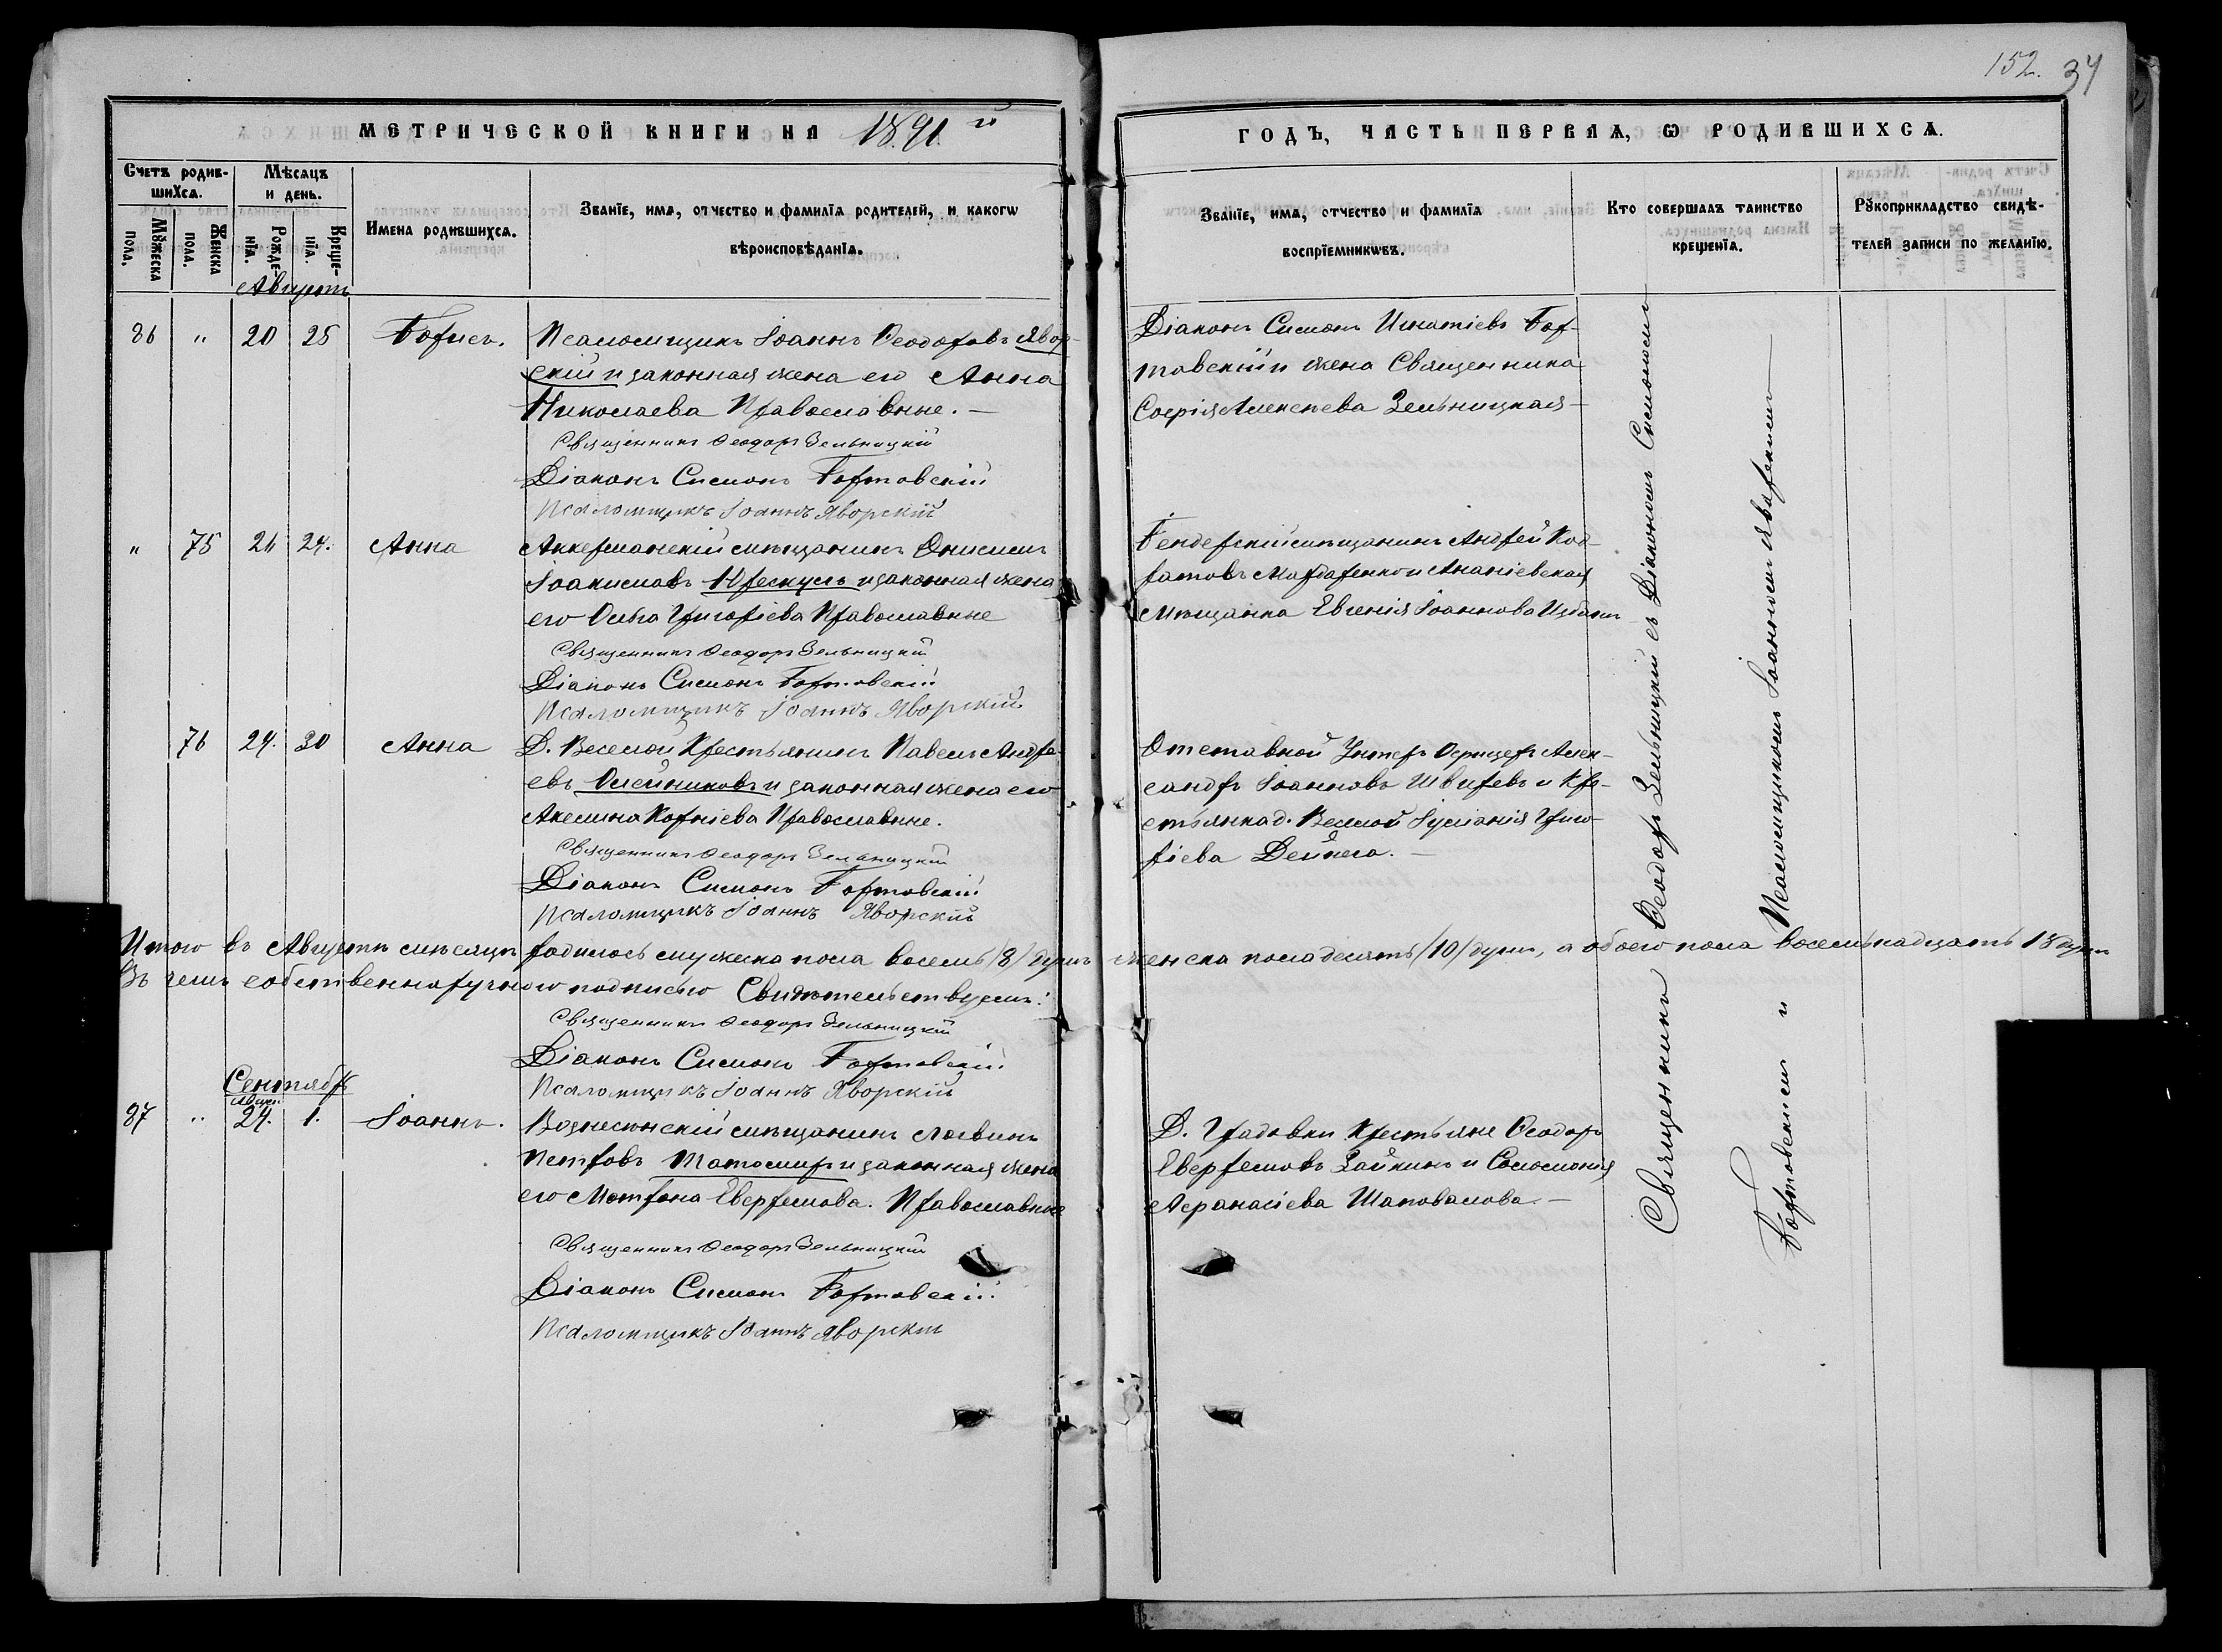 152. 34
МЕТРИЧЕСКОЙ КНИГИ НА 1891 й
ГОДЪ, ЧАСТЬ ПЕРВАЯ, Ѡ РОДИВШИХСѦ.
Счетъ родив-
шихсѧ.
Мѣсѧцъ
и день.
Мꙋжеска
пола.
Женска
пола.
Рожде-
нїѧ.
Креще-
нїѧ.
Имена родившихсѧ.
Званїе, имѧ, отчество и фамилїѧ родителей, и какогѡ
вѣроисповѣданїѧ.
Званїе, имѧ, отчество и фамилїѧ
воспрїемникѡвъ.
Кто совершалъ таинство
крещенїѧ.
Рꙋкоприкладство свидѣ-
телей записи по желанїю.
Августъ
86 " 20 25 Борисъ.
Псаломщикъ Іоаннъ Ѳеодоровъ Явор-
скій и законная жена его Анна
Николаева Православные. —
Священникъ Ѳеодоръ Зельницкій
Діаконъ Симонъ Бортовскій
Псаломщикъ Іоаннъ Яворскій
Діаконъ Симонъ Игнатіевъ Бор-
товскій и жена Священника
Софія Алексѣева Зельницкая —
" 75 21 24. Анна
Аккерманскій мѣщанинъ Онисимъ
Іоакимовъ Юрескулъ и законная жена
его Ольга Григоріева Православные
Священникъ Ѳеодоръ Зельницкій
Діаконъ Симонъ Бортовскій
Псаломщикъ Іоаннъ Яворскій
Бендерскій мѣщанинъ Андрей Код-
ратовъ Мардаренко и Ананіевская
Мѣщанка Евгенія Іоаннова
76 24. 30 Анна
Д. Веселой Крестьянинъ Павелъ Андре-
евъ Олейниковъ и законная жена его
Акелина Корніева Православные.
Священникъ Ѳеодоръ Зельницкій
Діаконъ Симонъ Бортовскій
Псаломщикъ Іоаннъ Яворскій
Отставной Унтеръ Офицеръ Алек-
сандръ Іоанновъ Швыревъ и Кре-
стьянка д. Веселой Іуліанія Григо-
ріева Дейнега. —
Итого въ Августѣ мѣсяцѣ родилось мужеска пола восемь /8/ душъ женска пола десять /10/ душъ, а обоего пола восемьнадцать 18 душъ
Въ чемъ собственноручною подписью Свидѣтельствуемъ:
Священникъ Ѳеодоръ Зельницкій
Діаконъ Симонъ Бортовскій
Псаломщикъ Іоаннъ Яворскій
Сентябрь
Авгус.
87 " 24. 1. Іоаннъ.
Вознесенскій мѣщанинъ Логвинъ
Петровъ Татомиръ и законная жена
его Матрона Евфремова. Православные
Священникъ Ѳеодоръ Зельницкій
Діаконъ Симонъ Бортовскій
Псаломщикъ Іоаннъ Яворскій
Д. Градовки Крестьяне Ѳеодоръ
Евфремовъ Зайкинъ и Соломонія
Афанасіева Шаповалова. —
Священникъ Ѳеодоръ Зельницкій съ Діакономъ Симономъ
Бортовскимъ и Псаломщикомъ Іоанномъ Яворскимъ